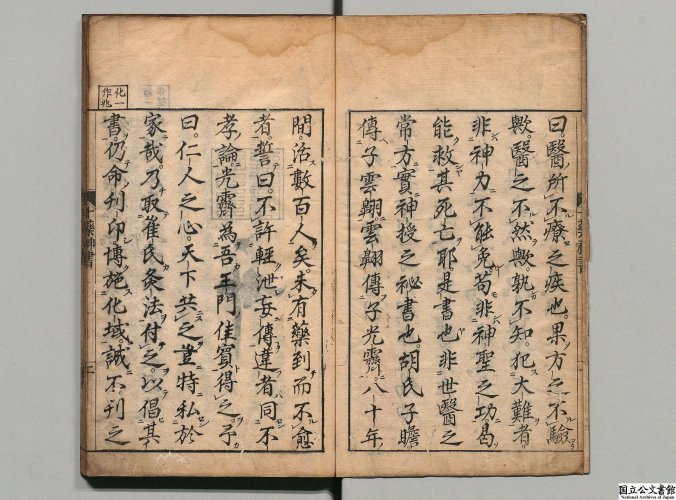 曰。醫所不療之疾也。果方之不驗
歟。醫之不然歟。孰不知。犯大難者。
非神力不能免。苟非神聖之功。曷
能救其死亡耶。是書也非世醫之
常方。實神授之祕書也。胡氏子瞻
傳子雲翱。雲翱傳子光霽。八十年
間。活數百人矣。未有藥到而不愈
者。誓曰。不許輕泄妄傳。違者同不
孝論。光霽為吾王門佳賓。得之。予
曰。仁人之心。天下共之。豈特私於
家哉。乃取崔氏灸法付之。以倡其
書。仍命刊印博施化域。誠不刊之
化一
作兆
十藥神書
二
国立公文書館
National Archives of Japan